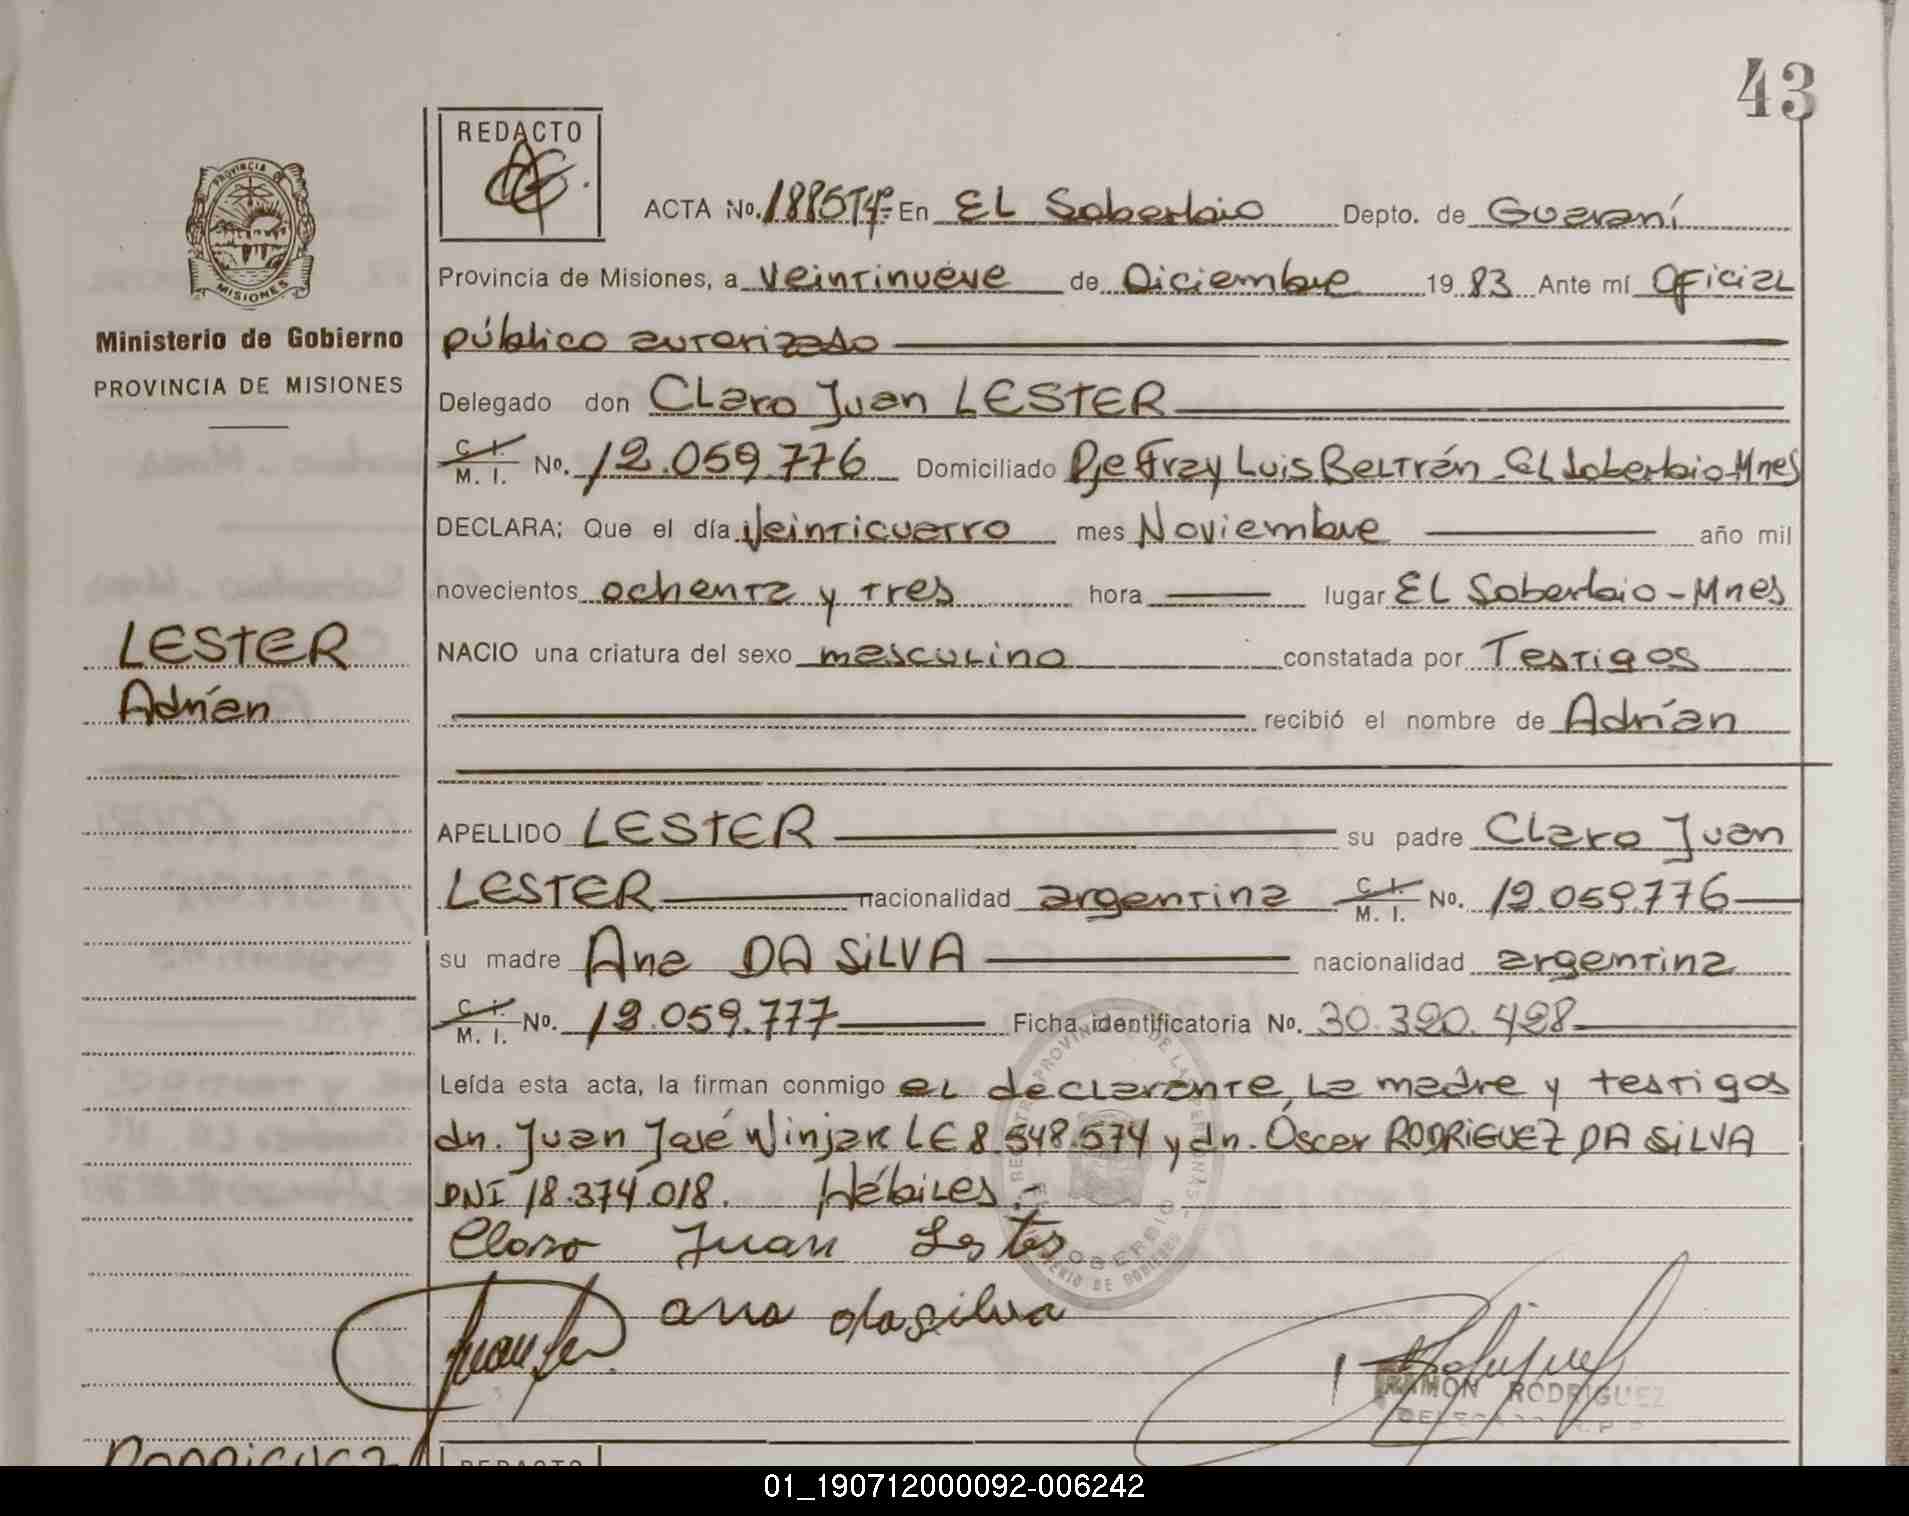 43
REDACTO
PROVINCIA DE
MISIONES
Ministerio de Gobierno
PROVINCIA DE MISIONES
LESTER
Adrían
ACTA No. En EL Soberbio Depto. de Guaraní
Provincia de Misiones, a Veintinueve de Diciembre 1983 Ante mí Oficial
público autorizado
Delegado don Claro Juan LESTER
C. I.
M. I. No. 12.059.776 Domiciliado Pje Fray Luis Beltrán - El Soberbio - Mnes
DECLARA; Que el día Veinticuatro mes Noviembre año mil
novecientos ochenta y tres hora lugar EL Soberbio - Mnes
NACIO una criatura del sexo masculino constatada por Testigos
recibió el nombre de Adrían
APELLIDO LESTER su padre Claro Juan
LESTER nacionalidad argentina C. I. M. I. No. 12.059.776
su madre Ana DA SiLVA nacionalidad argentina
C. I.
M. I. No. 12.059.777 Ficha identificatoria No. 30.320.428
Leída esta acta, la firman conmigo el declarante, la madre y testigos
dn. Juan José Winjar LE 8.548.574 y dn. Óscar RODRiGUEZ DA SiLVA
DNI 18.374.018. Hábiles.-
Claro Juan Lester
ana dasilva
RAMON RODRIGUEZ
RODRIGUEZ
REDACTO
01_190712000092-006242